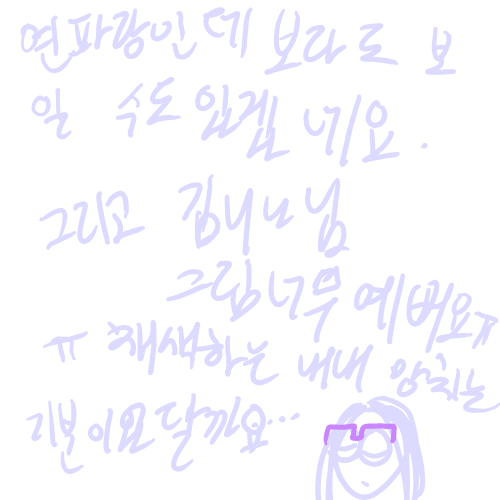 연파랑인데 보라로 보
일 수도 있겠네요.
그리고 김내느님
그림너무 예뻐요ㅠ
ㅠ 채색하는 내내 않치는
기분이요달까요...